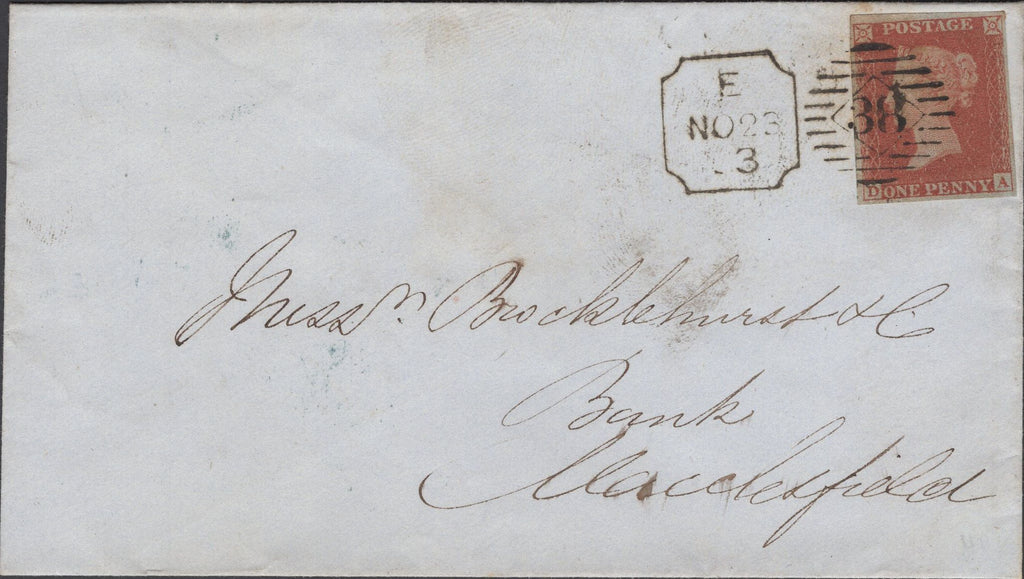 POSTAGE
38
D ONE PENNY A
E
NO 23
3
Messrs Brocklehurst & Co
Bank
Macclesfield